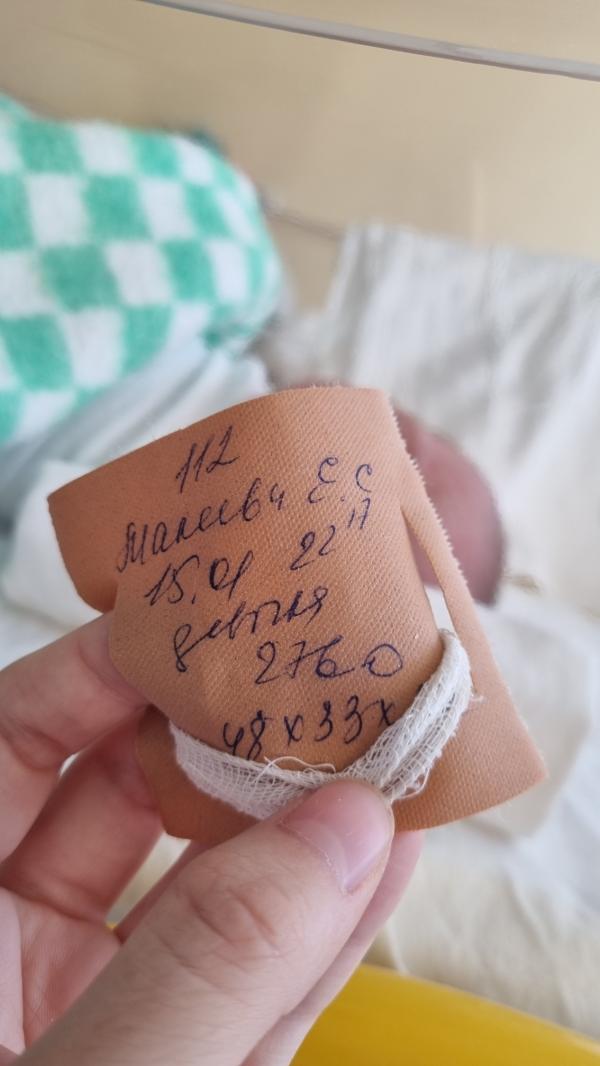 112
Е.С
15.01 22 17
девочка
2760
48 х 33 х